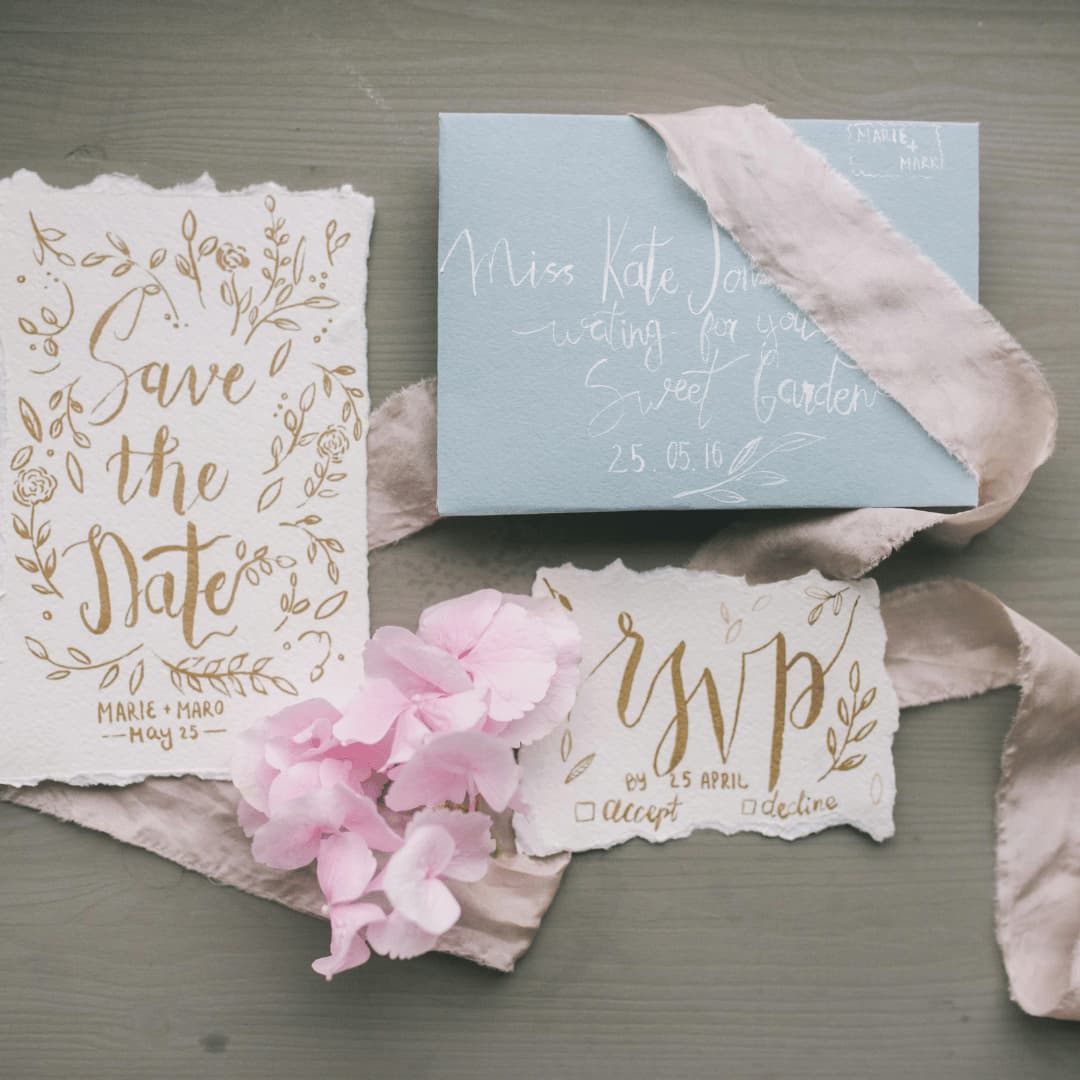 Save
the
Date
MARIE + MARO
—May 25—
MARIE
+
MARK
Miss Kate
waiting for you
Sweet Garden
25.05.16
rsvp
BY 25 APRIL
accept
decline